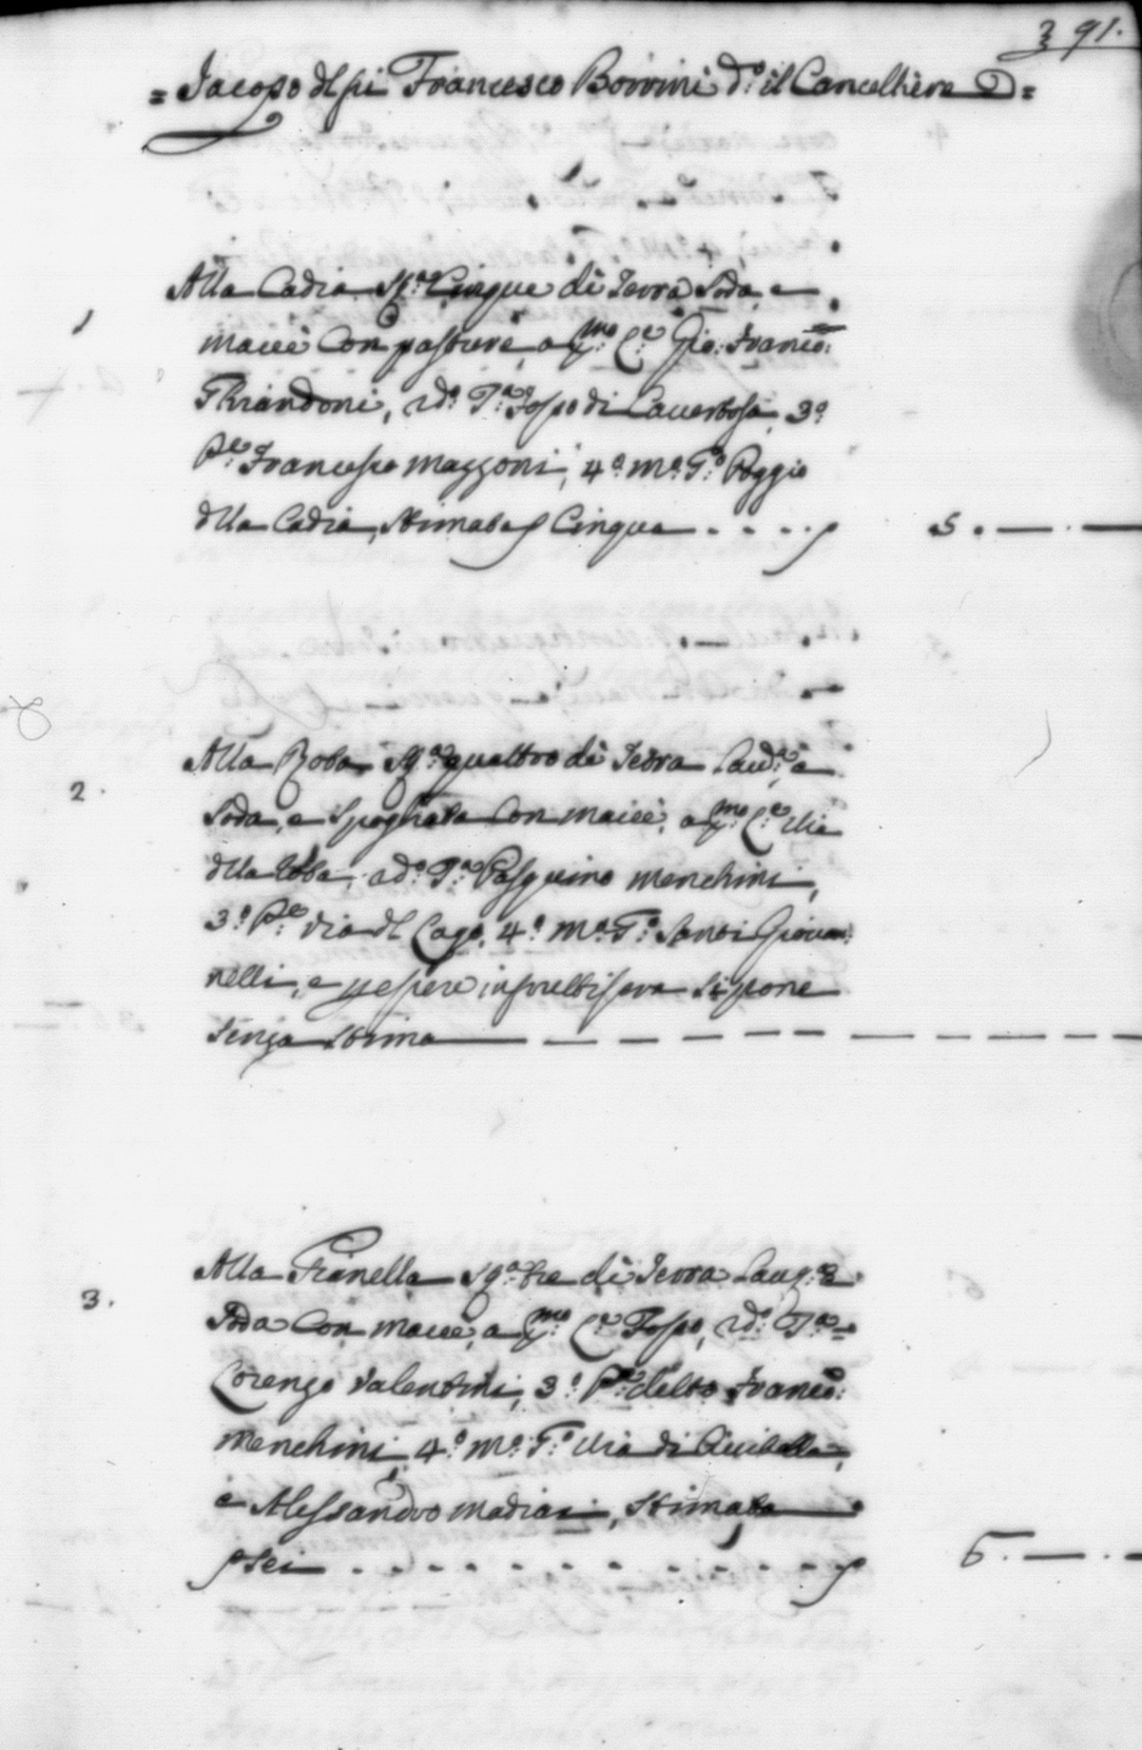 391.
= Jacopo dl pi Francesco Borrini d:o il Cancelliere =
Alla Cadia, St:a Cinque di Terra Soda, e
1
macie Con pasture, a p:mo C:e Gio: Franco:
Ghirandoni, 2do: T:a Fosso di Caverbosa, 3:o
P:e Francesco Mazzoni, 4:o m:o T:o Poggio
dlla Cadia, Stimata Cinque 5. —
Alla Roba St:a quattro di Terra Lav:a e
2.
Soda, e Spogliata Con macie, a p:mo C:e Via
dlla Roba, a do: T:a Pasquino Menchini,
3:o P:e Via dl Lago, 4:o M:o T:o Santi Giovan:
nelli, e p essere infruttifera si pone
Senza stima
Alla Pianella St:a tre di Terra Lav:a e
3.
Soda Con macie, a p:mo C:e Fosso, 2do: T:a
Lorenzo Valentini, 3:o P:e detto Franco:
Menchini, 4:o M:o T:o Via di Civitella,
e Alessandro Madiai, Stimata
Sei 6. —